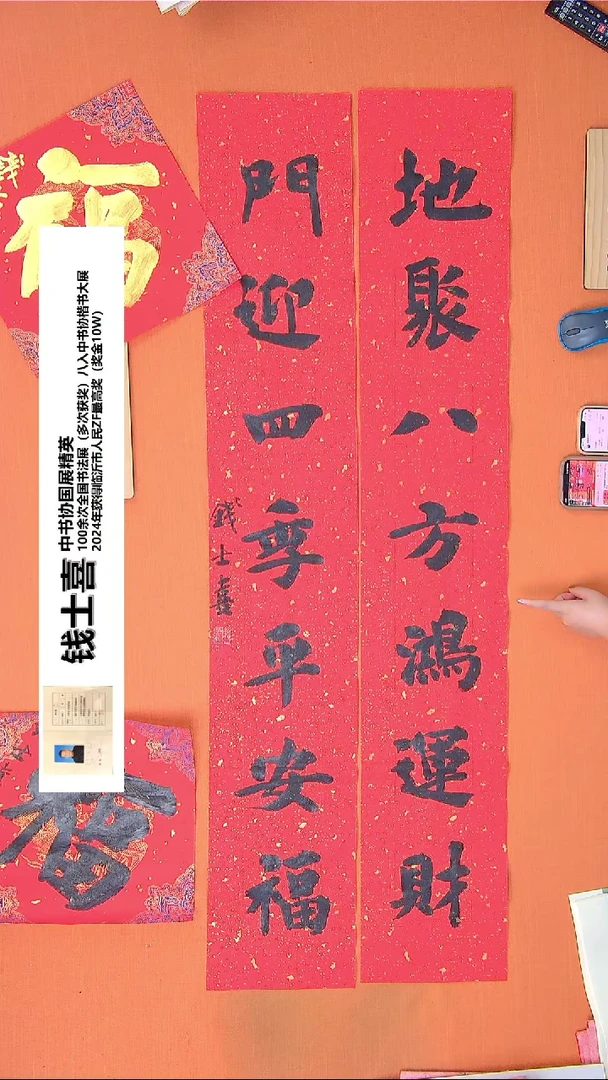 地聚八方鴻運財
門迎四季平安福
錢士喜
福
福
钱士喜
中书协国展精英
100余次全国书法展（多次获奖）八入中书协楷书大展
2024年获得临沂市人民ZF最高奖（奖金10W）